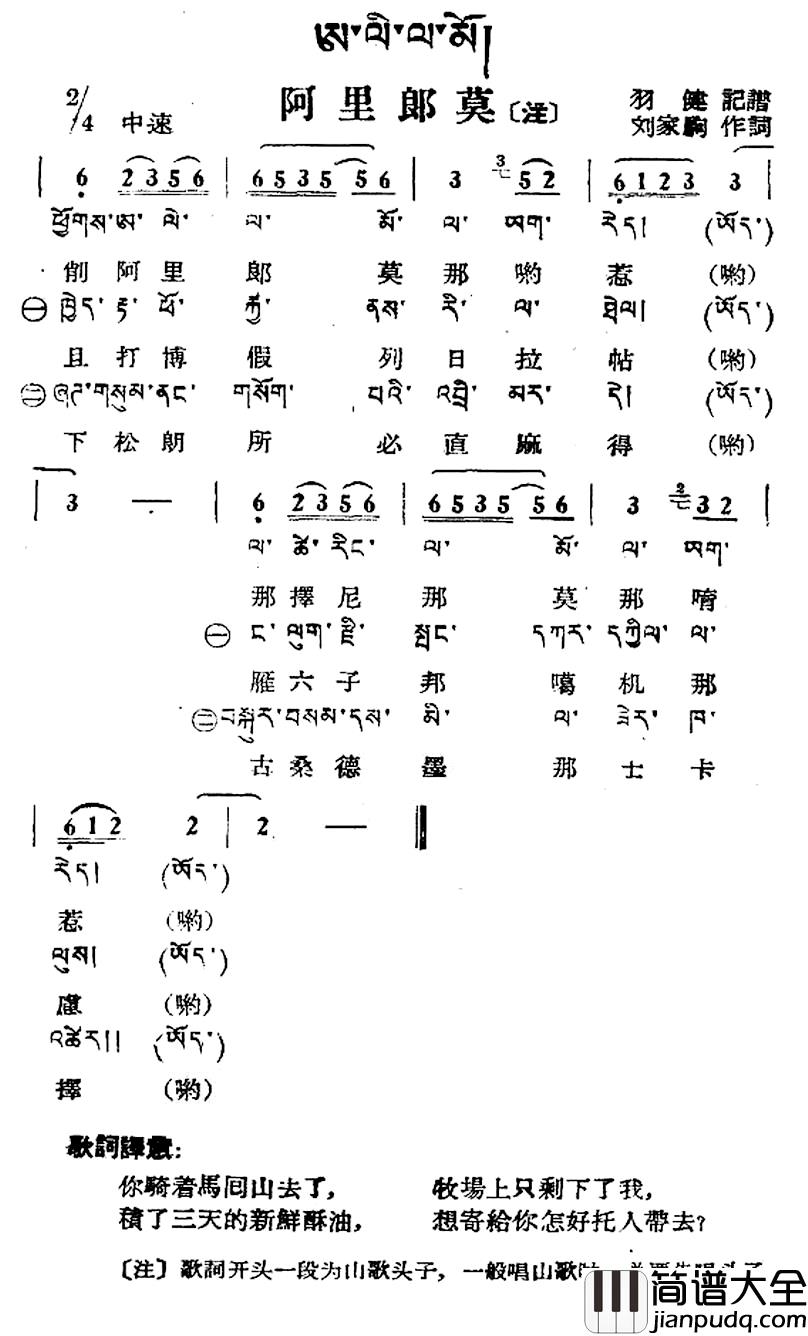 ཨ་ལི་ལ་མོ།
2/4 中速 阿里郎莫〔注〕 羽健 記譜
刘家駒 作詞
| 6 2356 | 6535 56 | 3 3 52 | 6123 3 |
ཕྱོགས་ཨ་ ལེ་ ལ་ མོ་ ལ་ ཨག་ རེད། (ཨོད་)
削阿里 郎 莫那喲 惹 (喲)
㊀ ཁྱེད་ རྟ་ ཕོ་ རྒྱ་ ནས་ རི་ ལ་ ཐེལ། (ཨོད་)
且打博 假 列日拉 帖 (喲)
㊁ ཞད་གསུམ་ནང་ གསོག་ པའི་ འབྲི་ མར་ དེ། (ཨོད་)
下松朗 所 必直麻 得 (喲)
| 3 — | 6 2356 | 6535 56 | 3 2 32 |
ལ་ ཚེ་ རིང་ ལ་ མོ་ ལ་ ཨག་
那擇尼 那 莫那唷
㊀ ང་ ལུག་ རྫི་ སྤང་ དཀར་ དཀྱིལ་ ལ་
雁六子 邦 噶机那
㊁ བསྐུར་བསམ་དས་ མི་ ལ་ ཟེར་ ཁ་
古桑德 墨 那士卡
| 612 2 | 2 — ‖
རེད། (ཨོད་)
惹 (喲)
ལུས། (ཨོད་)
慮 (喲)
འཚེར།། (ཨོད་)
擇 (喲)
歌詞譯意:
你騎着馬囘山去了, 牧場上只剩下了我,
積了三天的新鮮酥油, 想寄給你怎好托人帶去?
〔注〕歌詞开头一段为山歌头子, 一般唱山歌
简谱大全
jianpudq.com